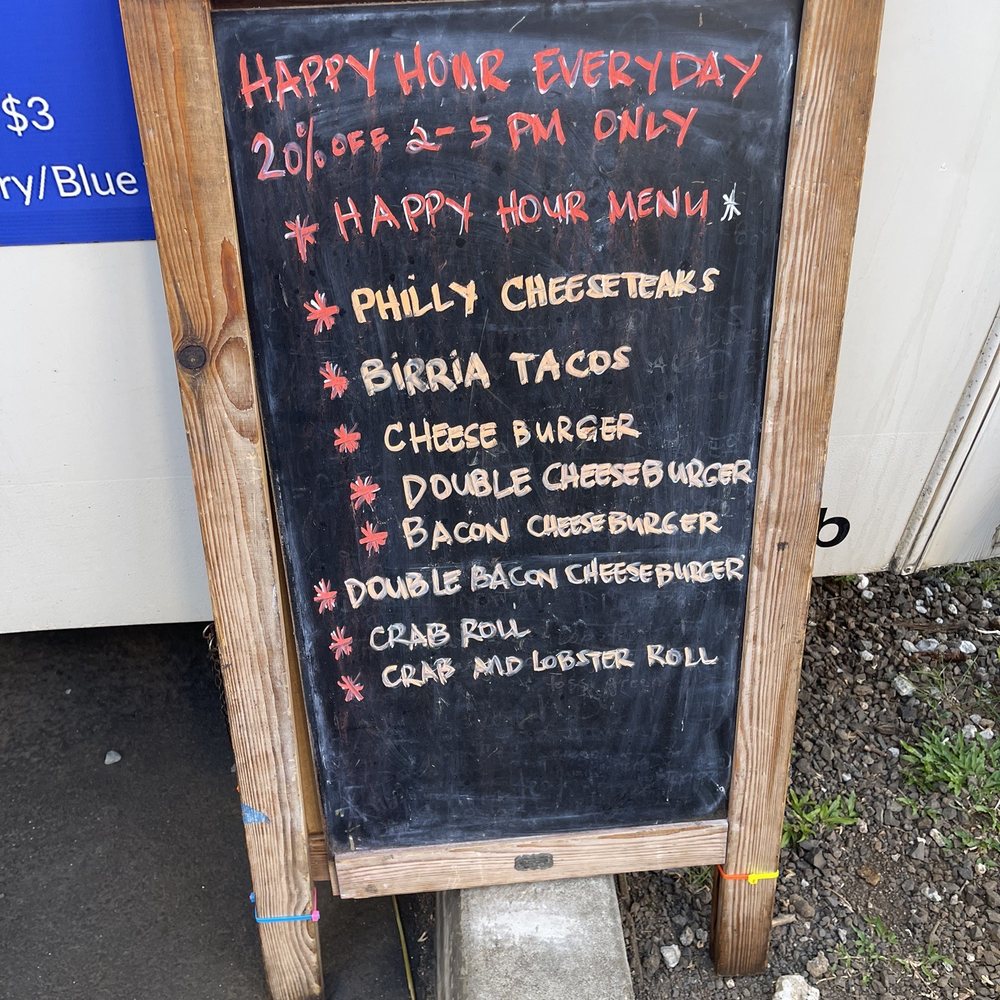 $3
ry/Blue
HAPPY HOUR EVERYDAY
20% OFF 2-5 PM ONLY
* HAPPY HOUR MENU *
* PHILLY CHEESETEAKS
* BIRRIA TACOS
* CHEESE BURGER
* DOUBLE CHEESEBURGER
* BACON CHEESEBURGER
* DOUBLE BACON CHEESEBURGER
* CRAB ROLL
* CRAB AND LOBSTER ROLL
b